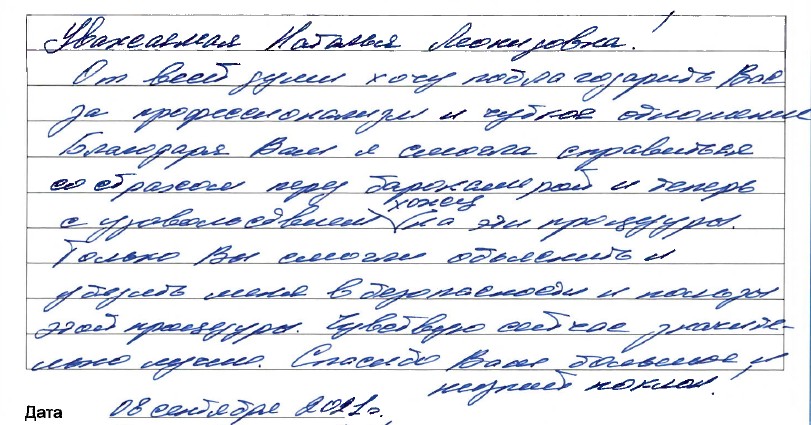 Уважаемая Наталья Леонидовна!
От всей души хочу поблагодарить Вас
за профессионализм и чуткое отношение
Благодаря Вам я смогла справиться
со страхом перед барокамерой и теперь
с удовольствием хожу на эти процедуры.
Только Вы смогли объяснить и
убедить меня в безопасности и пользы
этой процедуры. Чувствую сейчас значите-
льно лучше. Спасибо Вам большое и
низкий поклон!
Дата 08 сентября 2021г.